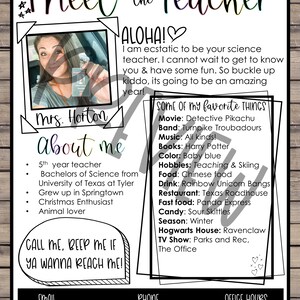 Meet the Teacher
ALOHA!
I am ecstatic to be your science
teacher. I cannot wait to get to know
you & have some fun. So buckle up
kiddo, its going to be an amazing
year
Mrs. Horton
About me
5th year teacher
Bachelors of Science from
University of Texas at Tyler
Grew up in Springtown
Christmas Enthusiast
Animal lover
CALL ME, BEEP ME IF
YA WANNA REACH ME!
SOME OF MY FAVORITE THINGS
Movie: Detective Pikachu
Band: Turnpike Troubadours
Music: All kinds
Books: Harry Potter
Color: Baby blue
Hobbies: Teaching & Skiing
Food: Chinese food
Drink: Rainbow Unicorn Bangs
Restaurant: Texas Roadhouse
Fast food: Panda Express
Candy: Sour Skittles
Season: Winter
Hogwarts House: Ravenclaw
TV Show: Parks and Rec,
The Office
EMAIL PHONE OFFICE HOURS
PREVIEW